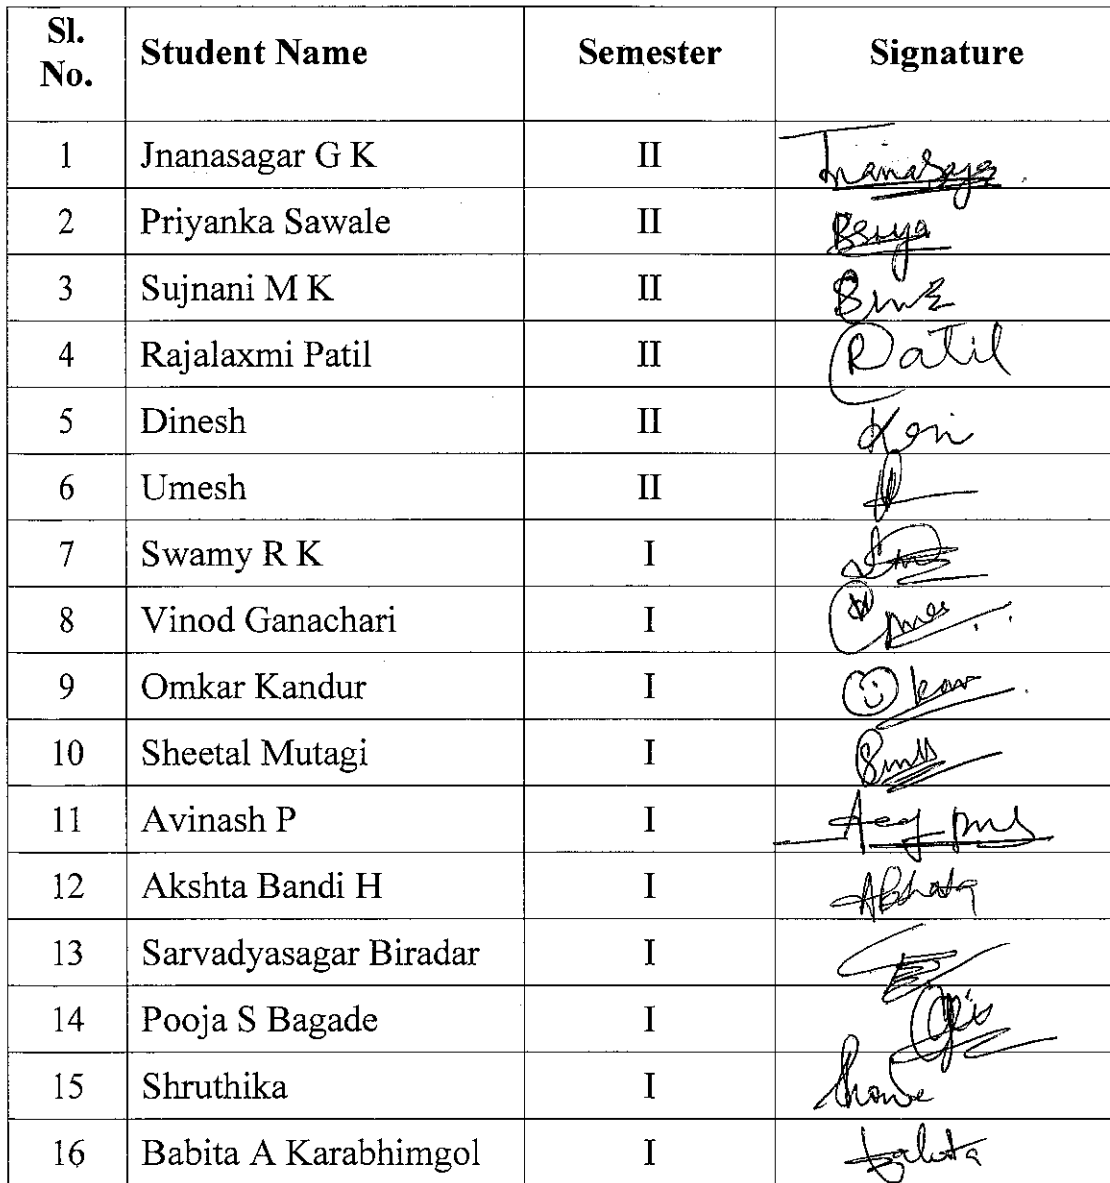 Sl. No. Student Name Semester Signature
1 Jnanasagar G K II
2 Priyanka Sawale II
3 Sujnani M K II
4 Rajalaxmi Patil II Patil
5 Dinesh II
6 Umesh II
7 Swamy R K I
8 Vinod Ganachari I
9 Omkar Kandur I
10 Sheetal Mutagi I
11 Avinash P I
12 Akshta Bandi H I
13 Sarvadyasagar Biradar I
14 Pooja S Bagade I
15 Shruthika I
16 Babita A Karabhimgol I